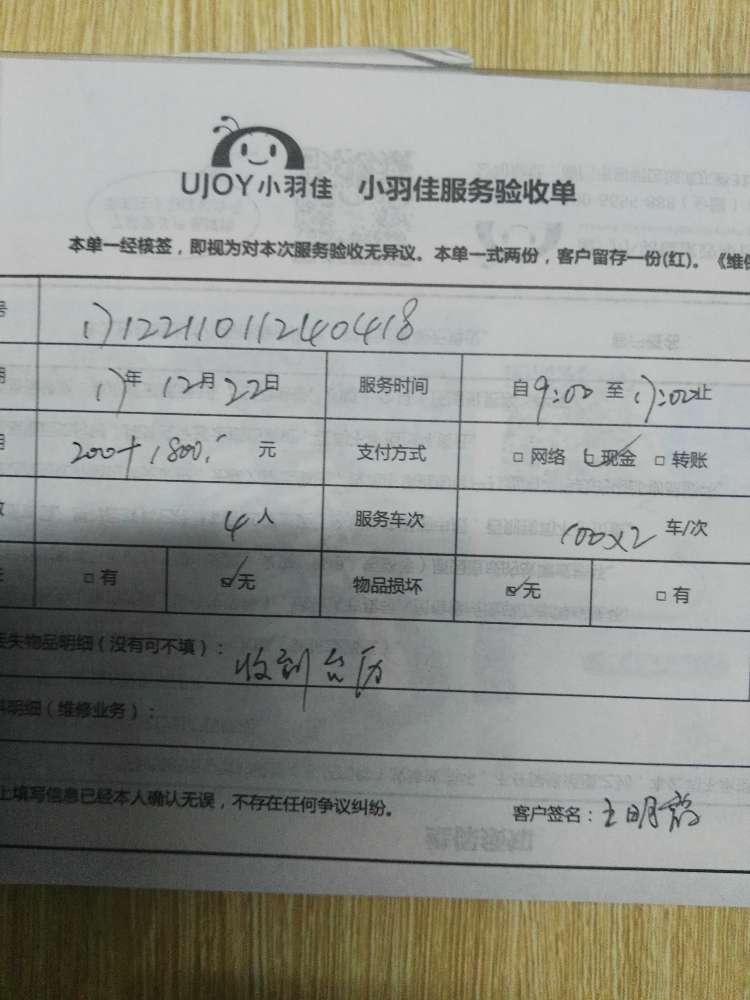 UJOY小羽佳 小羽佳服务验收单
本单一经核签，即视为对本次服务验收无异议。本单一式两份，客户留存一份(红)。《维
号 17122110112240418
期 17年 12月 22日 服务时间 自 9:00 至 17:00 止
用 200+1800. 元 支付方式 □ 网络 ☑ 现金 □ 转账
数 4 人 服务车次 100×2 车/次
□ 有 ☑ 无 物品损坏 ☑ 无 □ 有
丢失物品明细（没有可不填）： 收到台历
料明细（维修业务）：
上填写信息已经本人确认无误，不存在任何争议纠纷。 客户签名：王明